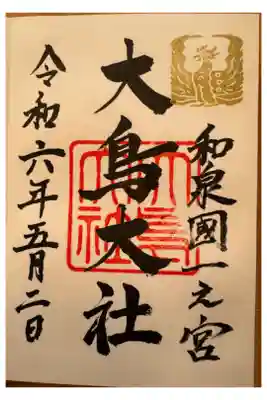 和泉國一之宮
大鳥大社
令和六年五月二日